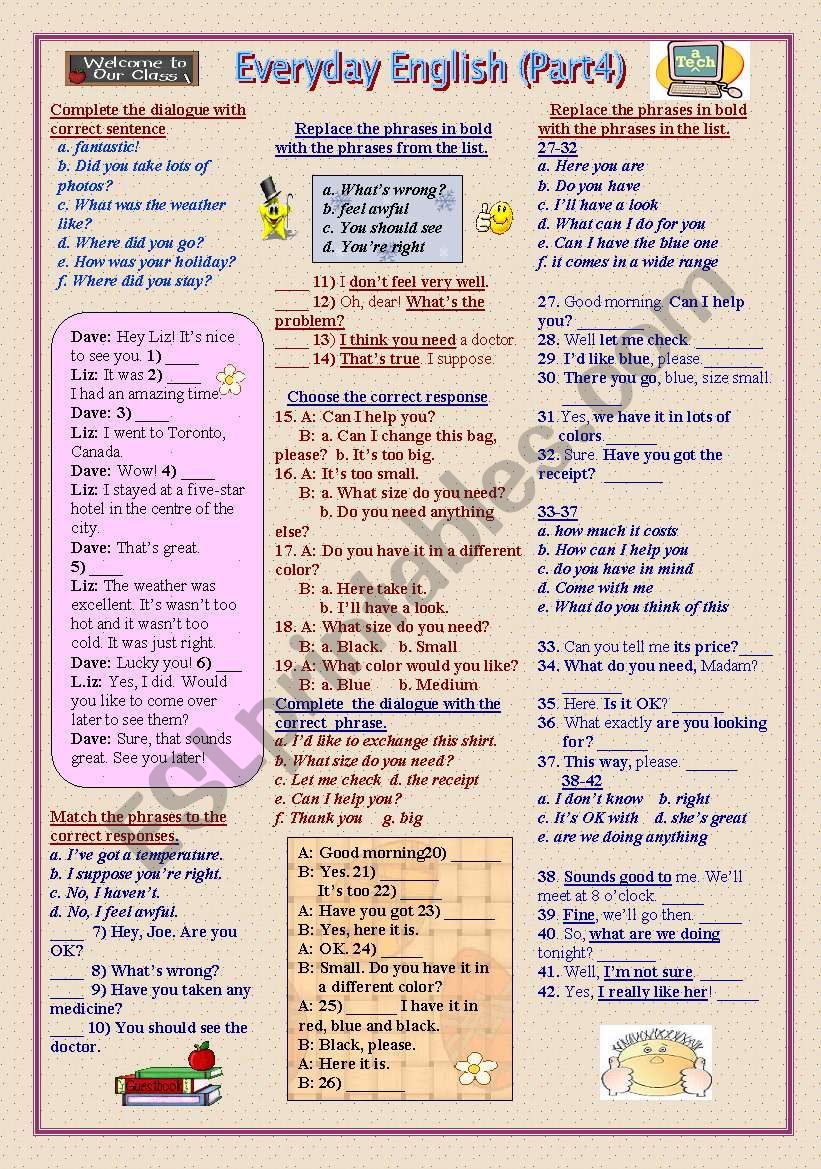 Welcome to
Our Class
Everyday English (Part4)
a
Tech
Complete the dialogue with
correct sentence.
a. fantastic!
b. Did you take lots of
photos?
c. What was the weather
like?
d. Where did you go?
e. How was your holiday?
f. Where did you stay?
Dave: Hey Liz! It's nice
to see you. 1) ____
Liz: It was 2) ____
I had an amazing time.
Dave: 3) ____
Liz: I went to Toronto,
Canada.
Dave: Wow! 4) ____
Liz: I stayed at a five-star
hotel in the centre of the
city.
Dave: That's great.
5) ____
Liz: The weather was
excellent. It's wasn't too
hot and it wasn't too
cold. It was just right.
Dave: Lucky you! 6) ___
L.iz: Yes, I did. Would
you like to come over
later to see them?
Dave: Sure, that sounds
great. See you later!
Match the phrases to the
correct responses.
a. I've got a temperature.
b. I suppose you're right.
c. No, I haven't.
d. No, I feel awful.
____ 7) Hey, Joe. Are you
OK?
____ 8) What's wrong?
____ 9) Have you taken any
medicine?
____ 10) You should see the
doctor.
Guestbook
Replace the phrases in bold
with the phrases from the list.
a. What's wrong?
b. feel awful
c. You should see
d. You're right
____ 11) I don't feel very well.
____ 12) Oh, dear! What's the
problem?
____ 13) I think you need a doctor.
____ 14) That's true. I suppose.
Choose the correct response.
15. A: Can I help you?
B: a. Can I change this bag,
please? b. It's too big.
16. A: It's too small.
B: a. What size do you need?
b. Do you need anything
else?
17. A: Do you have it in a different
color?
B: a. Here take it.
b. I'll have a look.
18. A: What size do you need?
B: a. Black. b. Small
19. A: What color would you like?
B: a. Blue b. Medium
Complete the dialogue with the
correct phrase.
a. I'd like to exchange this shirt.
b. What size do you need?
c. Let me check d. the receipt
e. Can I help you?
f. Thank you g. big
A: Good morning20) ______
B: Yes. 21) _______
It's too 22) _____
A: Have you got 23) ______
B: Yes, here it is.
A: OK. 24) _____
B: Small. Do you have it in
a different color?
A: 25) ______ I have it in
red, blue and black.
B: Black, please.
A: Here it is.
B: 26) _______
Replace the phrases in bold
with the phrases in the list.
27-32
a. Here you are
b. Do you have
c. I'll have a look
d. What can I do for you
e. Can I have the blue one
f. it comes in a wide range
27. Good morning. Can I help
you? ________
28. Well let me check. ________
29. I'd like blue, please._______
30. There you go, blue, size small.
_______
31 Yes, we have it in lots of
colors.______
32. Sure. Have you got the
receipt? _______
33-37
a. how much it costs
b. How can I help you
c. do you have in mind
d. Come with me
e. What do you think of this
33. Can you tell me its price?____
34. What do you need, Madam?
_______
35. Here. Is it OK? ______
36. What exactly are you looking
for? ______
37. This way, please. ______
38-42
a. I don't know b. right
c. It's OK with d. she's great
e. are we doing anything
38. Sounds good to me. We'll
meet at 8 o'clock. _____
39. Fine, we'll go then. _____
40. So, what are we doing
tonight? _______
41. Well, I'm not sure. _____
42. Yes, I really like her! _____
ESLprintables.com